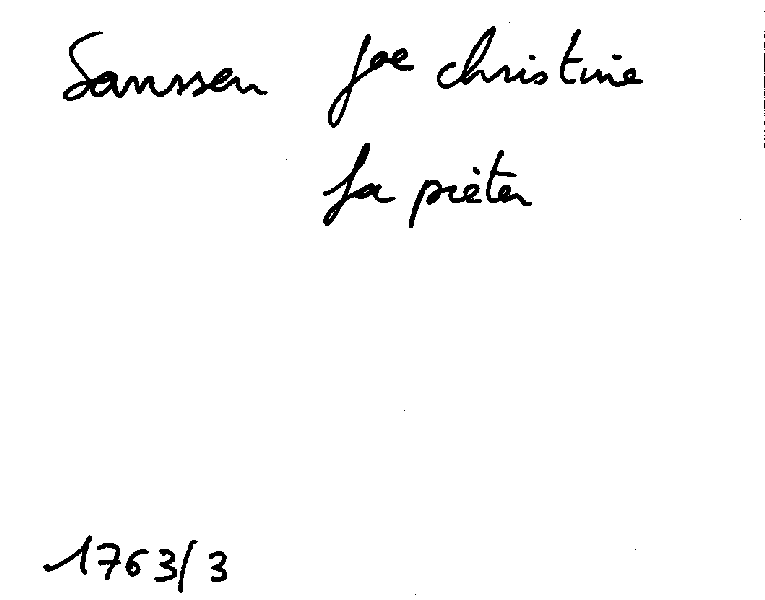 Sanssen Joe christine
fa pièter
1763/3